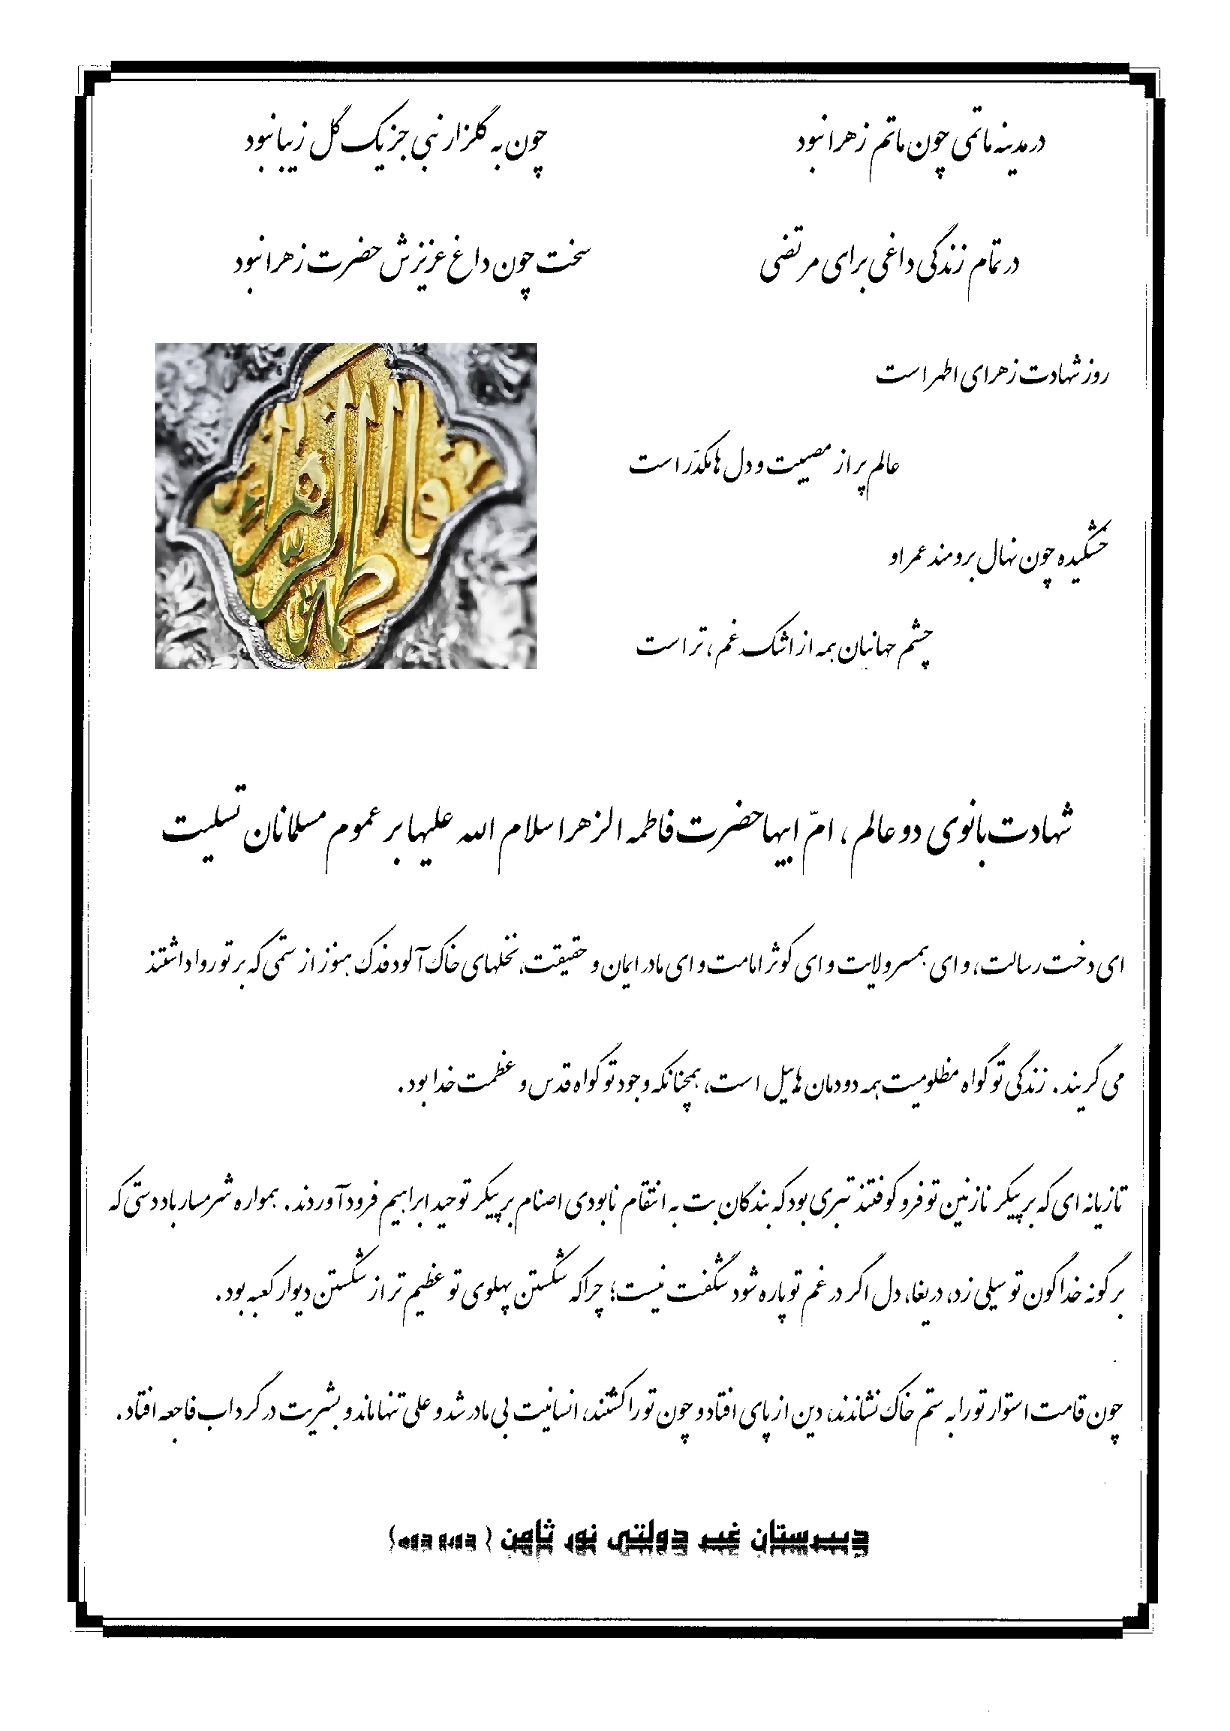 در مدینه ماتمی چون ماتم زهرا نبود
چون به گلزار نبی جز یک گل زیبا نبود
در تمام زندگی داغی برای مرتضی
سخت چون داغ عزیزش حضرت زهرا نبود
روز شهادت زهرای اطهر است
عالم پر از مصیبت و دل ها مکدّر است
خشکیده چون نهال برومند عمر او
چشم جهانیان همه از اشک غم ، تر است
فاطمة الزهراء
شهادت بانوی دو عالم ، امّ ابیها حضرت فاطمه الزهرا سلام الله علیها بر عموم مسلمانان تسلیت
ای دخت رسالت، و ای همسر ولایت و ای کوثر امامت و ای مادر ایمان و حقیقت، نخلهای خاک آلود فدک هنوز از ستمی که بر تو روا داشتند
می گریند. زندگی تو گواه مظلومیت همه دودمان هابیل است، همچنانکه وجود تو گواه قدس و عظمت خدا بود.
تازیانه ای که بر پیکر نازنین تو فرو کوفتند تبری بود که بندگان بت به انتقام نابودی اصنام بر پیکر توحید ابراهیم فرود آوردند. همواره شرمسار باد دستی که
بر گونه خداگون تو سیلی زد، دریغا، دل اگر در غم تو پاره شود شگفت نیست؛ چرا که شکستن پهلوی تو عظیم تر از شکستن دیوار کعبه بود.
چون قامت استوار تو را به ستم خاک نشاندند، دین از پای افتاد و چون تو را کشتند، انسانیت بی مادر شد و علی تنها ماند و بشریت در گرداب فاجعه افتاد.
دبیرستان غیر دولتی نور ثامن ( دوره دوم)